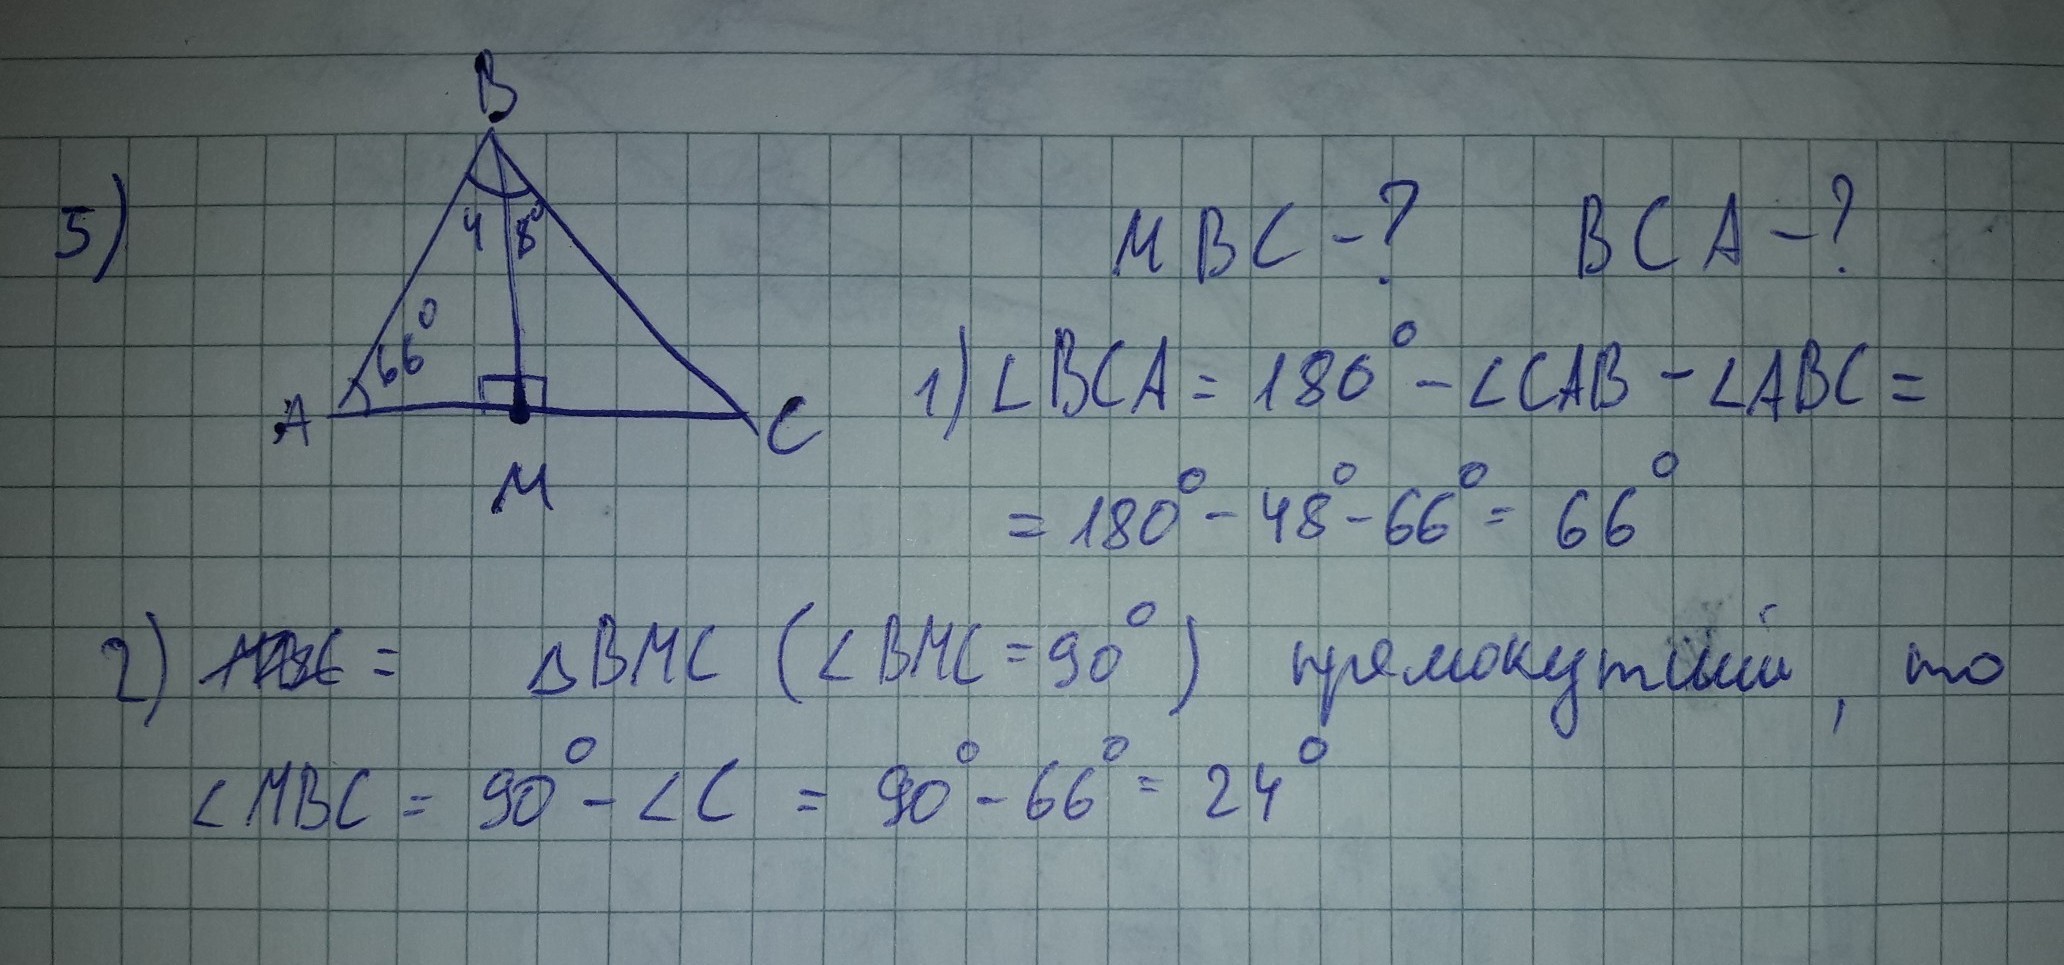 B
5)
48°
66°
A
C
M
MBC-? BCA-?
1) ∠BCA = 180° - ∠CAB - ∠ABC =
= 180° - 48° - 66° = 66°
2) = △BMC (∠BMC = 90°) прямокутний, то
∠MBC = 90° - ∠C = 90° - 66° = 24°